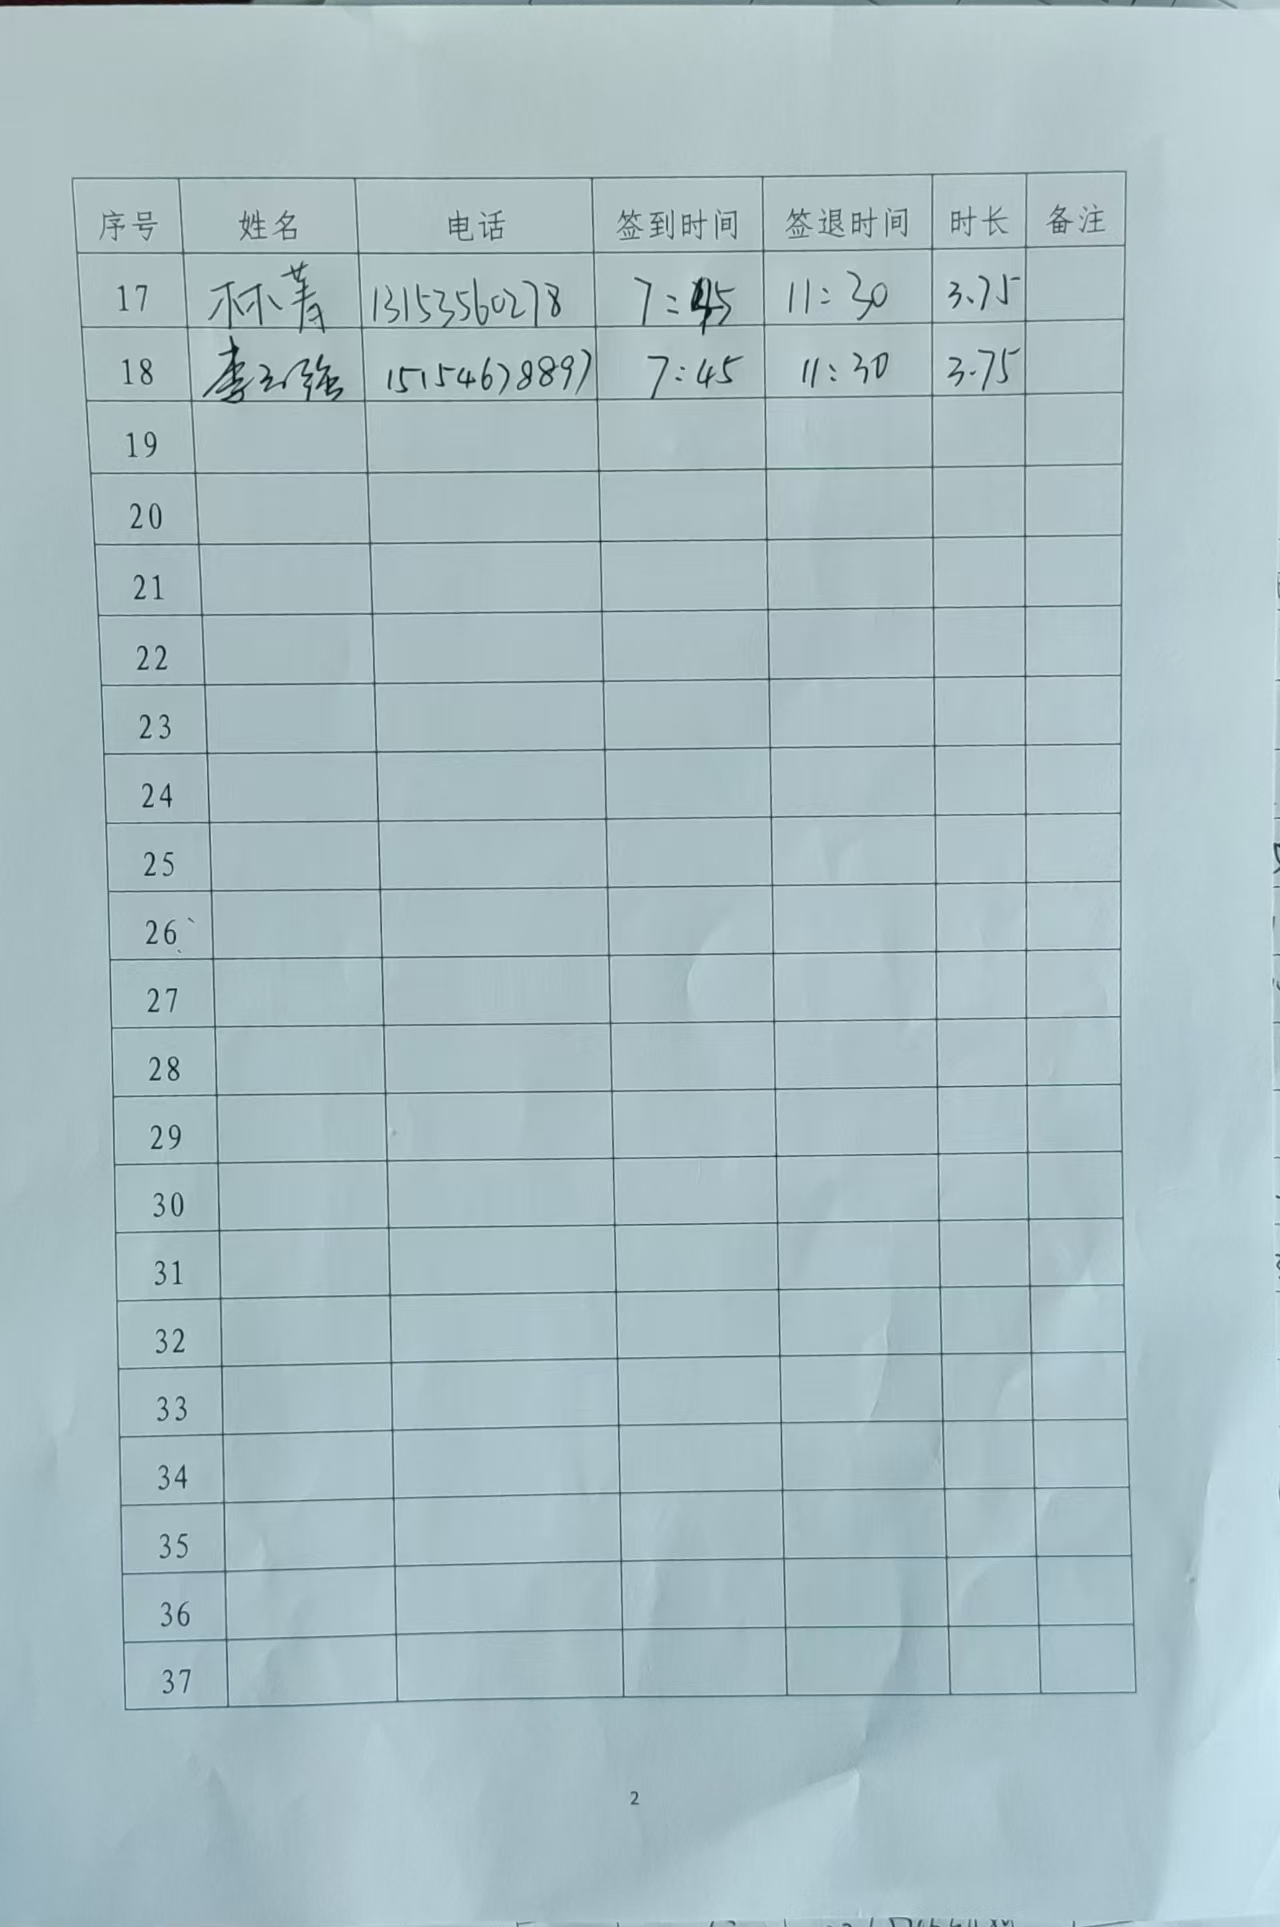 序号 姓名 电话 签到时间 签退时间 时长 备注
17 林菁 13153560278 7:45 11:30 3.75
18 李玉强 15154678897 7:45 11:30 3.75
19
20
21
22
23
24
25
26
27
28
29
30
31
32
33
34
35
36
37
2